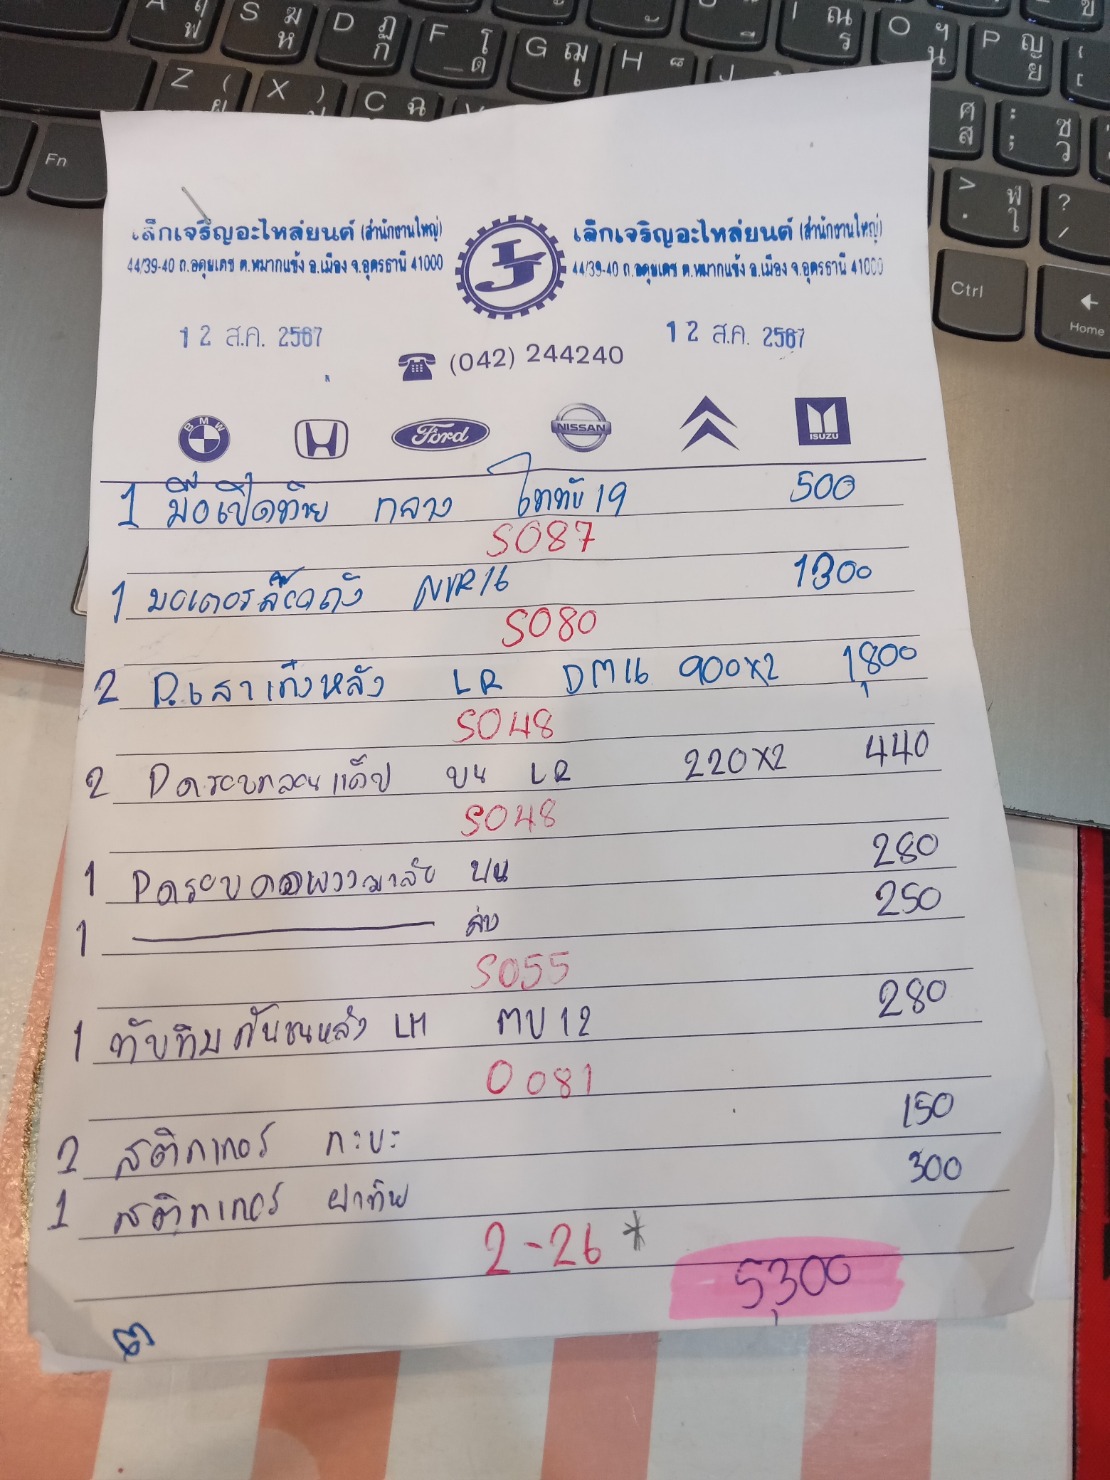 เล็กเจริญอะไหล่ยนต์ (สำนักงานใหญ่)
44/39-40 ถ.อดุยเดช ต.หมากแข้ง อ.เมือง จ.อุดรธานี 41000
เล็กเจริญอะไหล่ยนต์ (สำนักงานใหญ่)
44/39-40 ถ.อดุยเดช ต.หมากแข้ง อ.เมือง จ.อุดรธานี 41000
12 ส.ค. 2567
12 ส.ค. 2567
(042) 244240
BMW
Ford
NISSAN
ISUZU
1 มือเปิดท้าย กลาง 19 500
S087
1 มอเตอร์ล๊อคถัง 1300
S080
2 เสาเก๋งหลัง LR DM16 900x2 1,800
S048
2 บน LR 220x2 440
S048
1 บน 280
1 ล่าง 250
S055
1 ทับทิมกันชนหลัง LH 12 280
0081
2 สติกเกอร์ กะบะ 150
1 สติกเกอร์ ฝาท้าย 300
2-26 *
5,300
Fn
Ctrl
Home
S ฆ ห
D ฏ ก
F โ ด
G ฌ เ
H
Z ( ผ
X )
C ฉ
I ณ ร
O ฯ น
P ญ ย
ศ ส
: ; ซ ว
> . ฬ ใ
? /